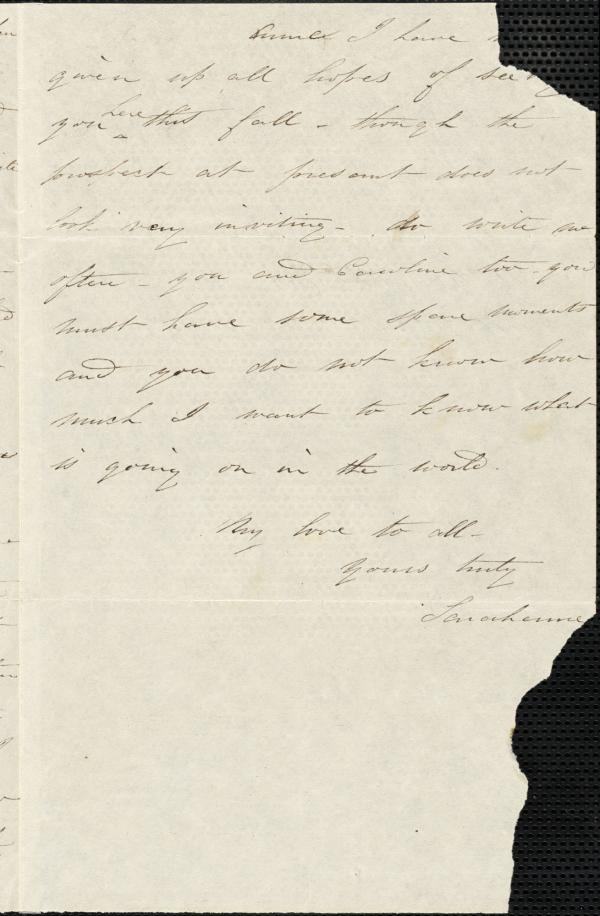 I have
given up all hopes of seeing
you here this fall - though the
prospect at present does not
look very inviting - do write me
often - you and Caroline too - you
must have some spare moments
and you do not know how
much I want to know what
is going on in the world.
My love to all -
Yours truly
Sarahanne